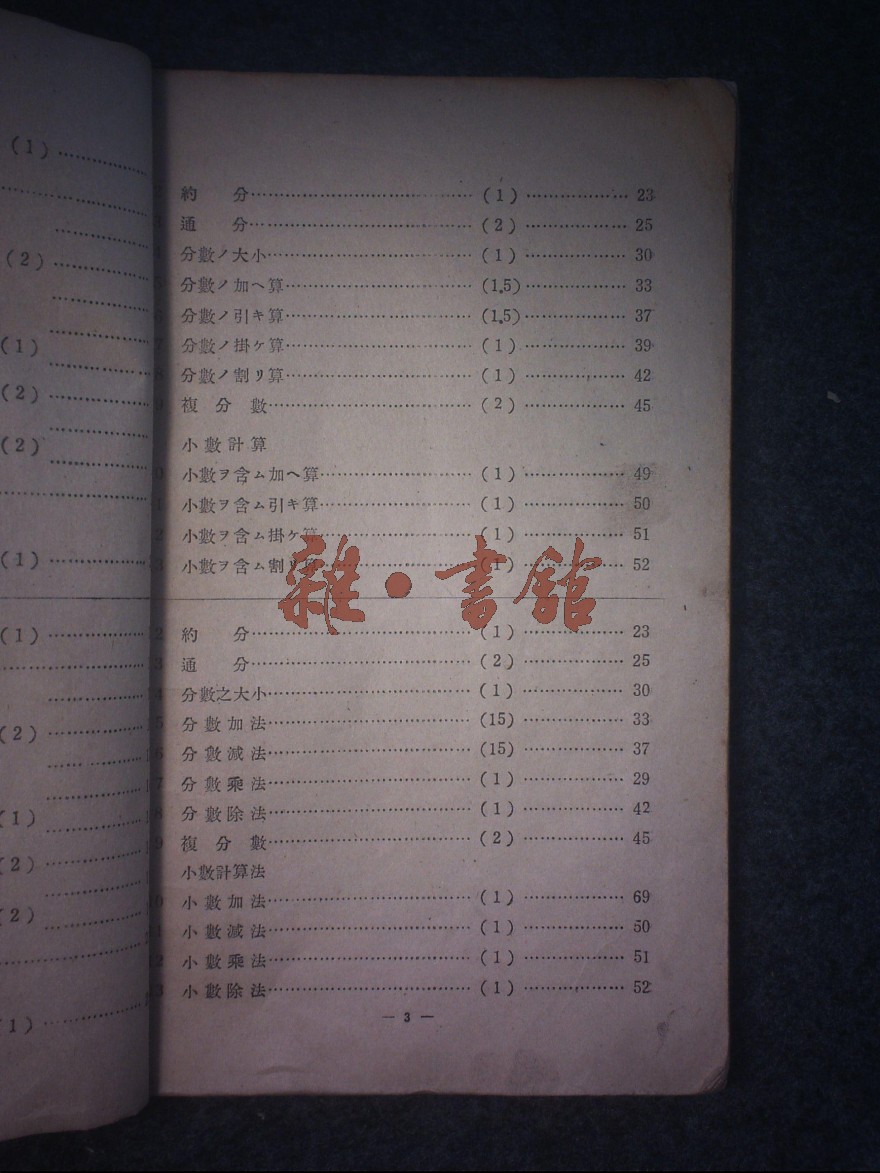 約 分 (1) 23
通 分 (2) 25
分數ノ大小 (1) 30
分數ノ加ヘ算 (1,5) 33
分數ノ引キ算 (1,5) 37
分數ノ掛ケ算 (1) 39
分數ノ割リ算 (1) 42
複分數 (2) 45
小數計算
小數ヲ含ム加ヘ算 (1) 49
小數ヲ含ム引キ算 (1) 50
小數ヲ含ム掛ケ算 (1) 51
小數ヲ含ム割リ算 (1) 52
雜·書館
約 分 (1) 23
通 分 (2) 25
分數之大小 (1) 30
分數加法 (15) 33
分數減法 (15) 37
分數乘法 (1) 29
分數除法 (1) 42
複分數 (2) 45
小數計算法
小數加法 (1) 69
小數減法 (1) 50
小數乘法 (1) 51
小數除法 (1) 52
— 3 —
(1)
(2)
(1)
(2)
(2)
(1)
(1)
(2)
(1)
(2)
(2)
(1)